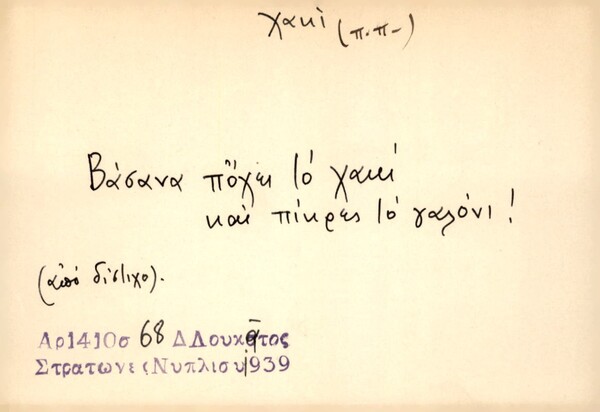 χακὶ (π.π-)
Βάσανα πὄχει τό χακί
καὶ πίκρες τό γαλόνι!
(ἀπό δίστιχο).
Αρ1410σ 68 ΔΛουκᾶτος
Στρατωνες Νυπλισυ 1939